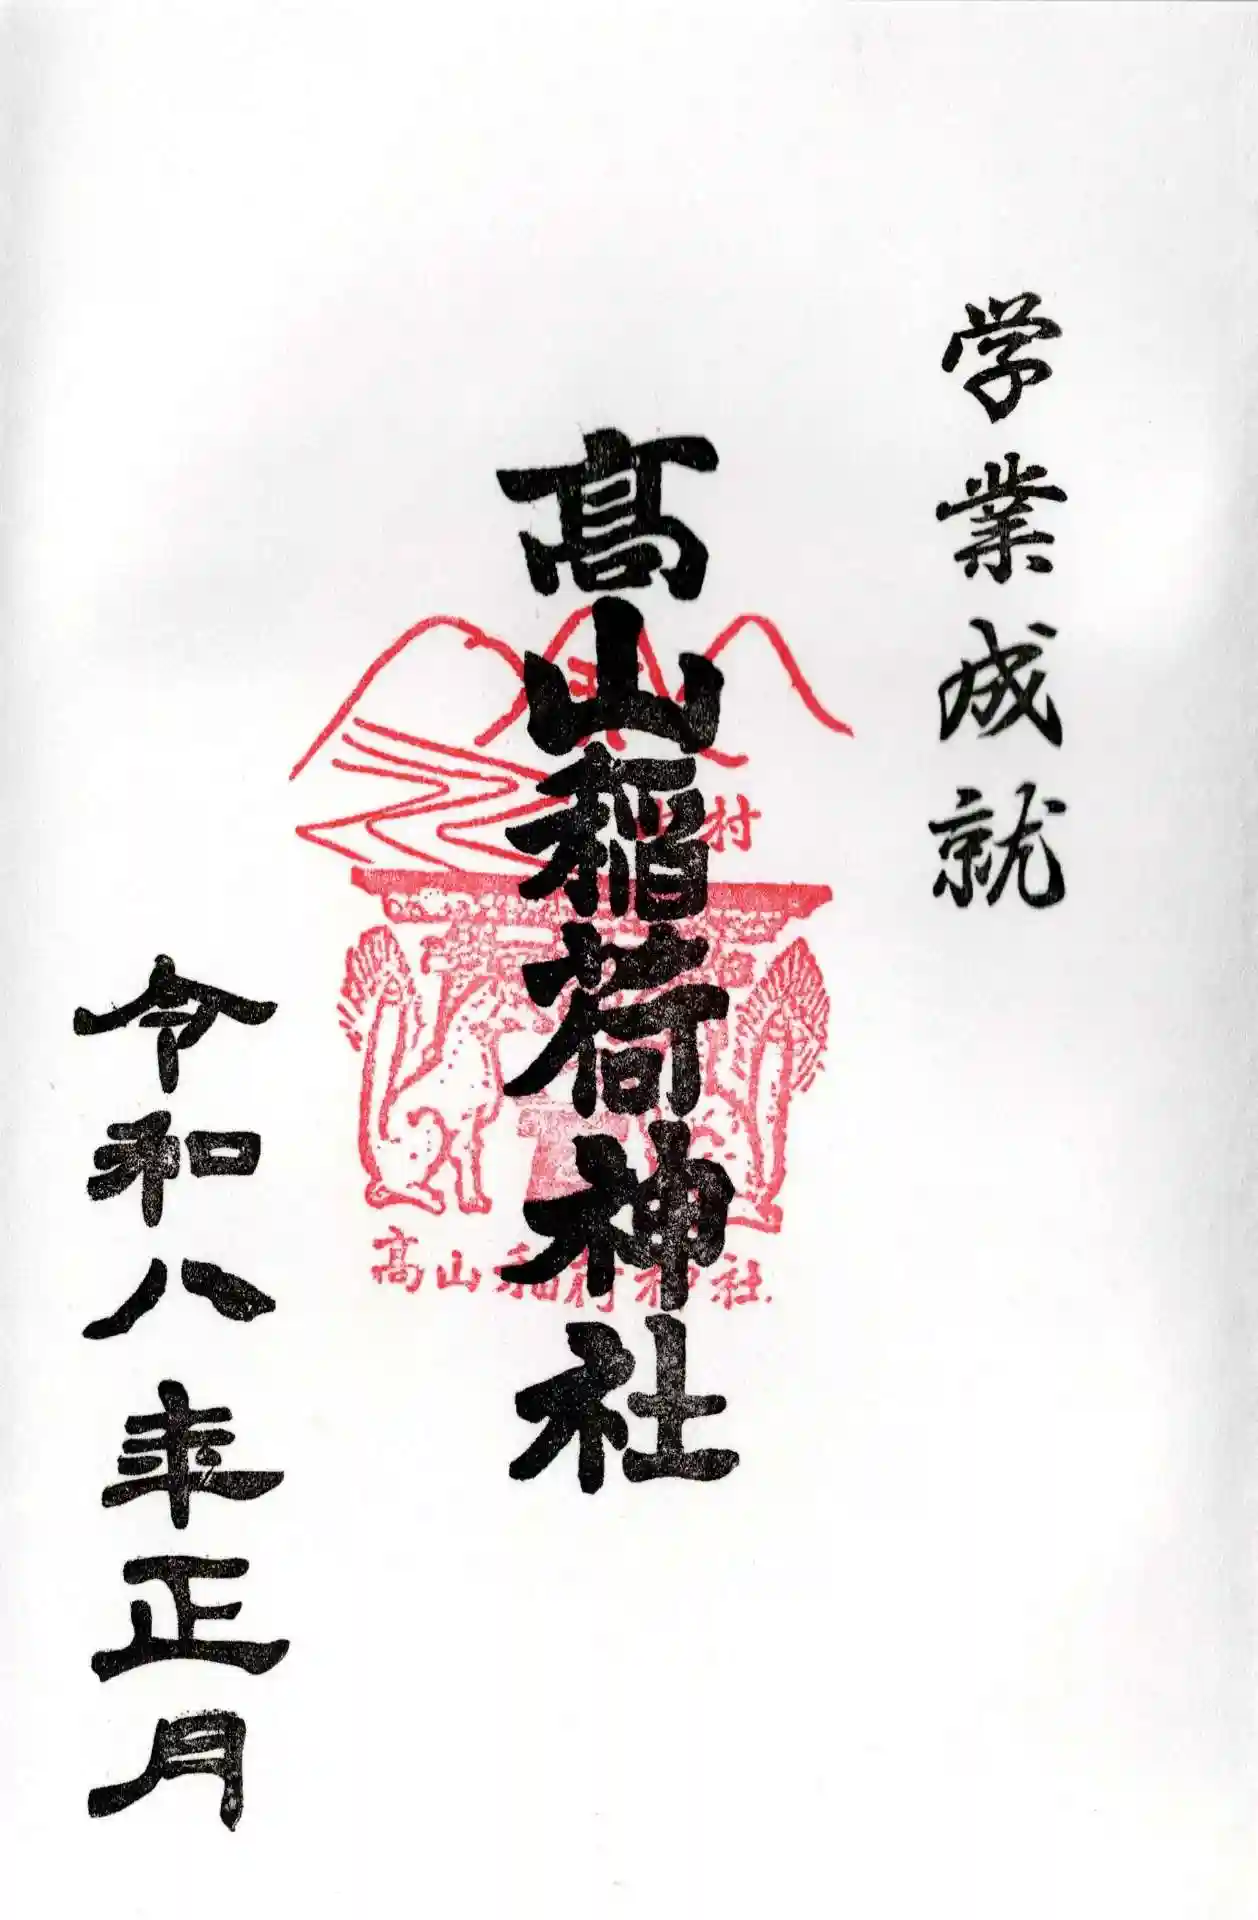 学業成就
髙山稲荷神社
村
高山稲荷神社
令和八年正月